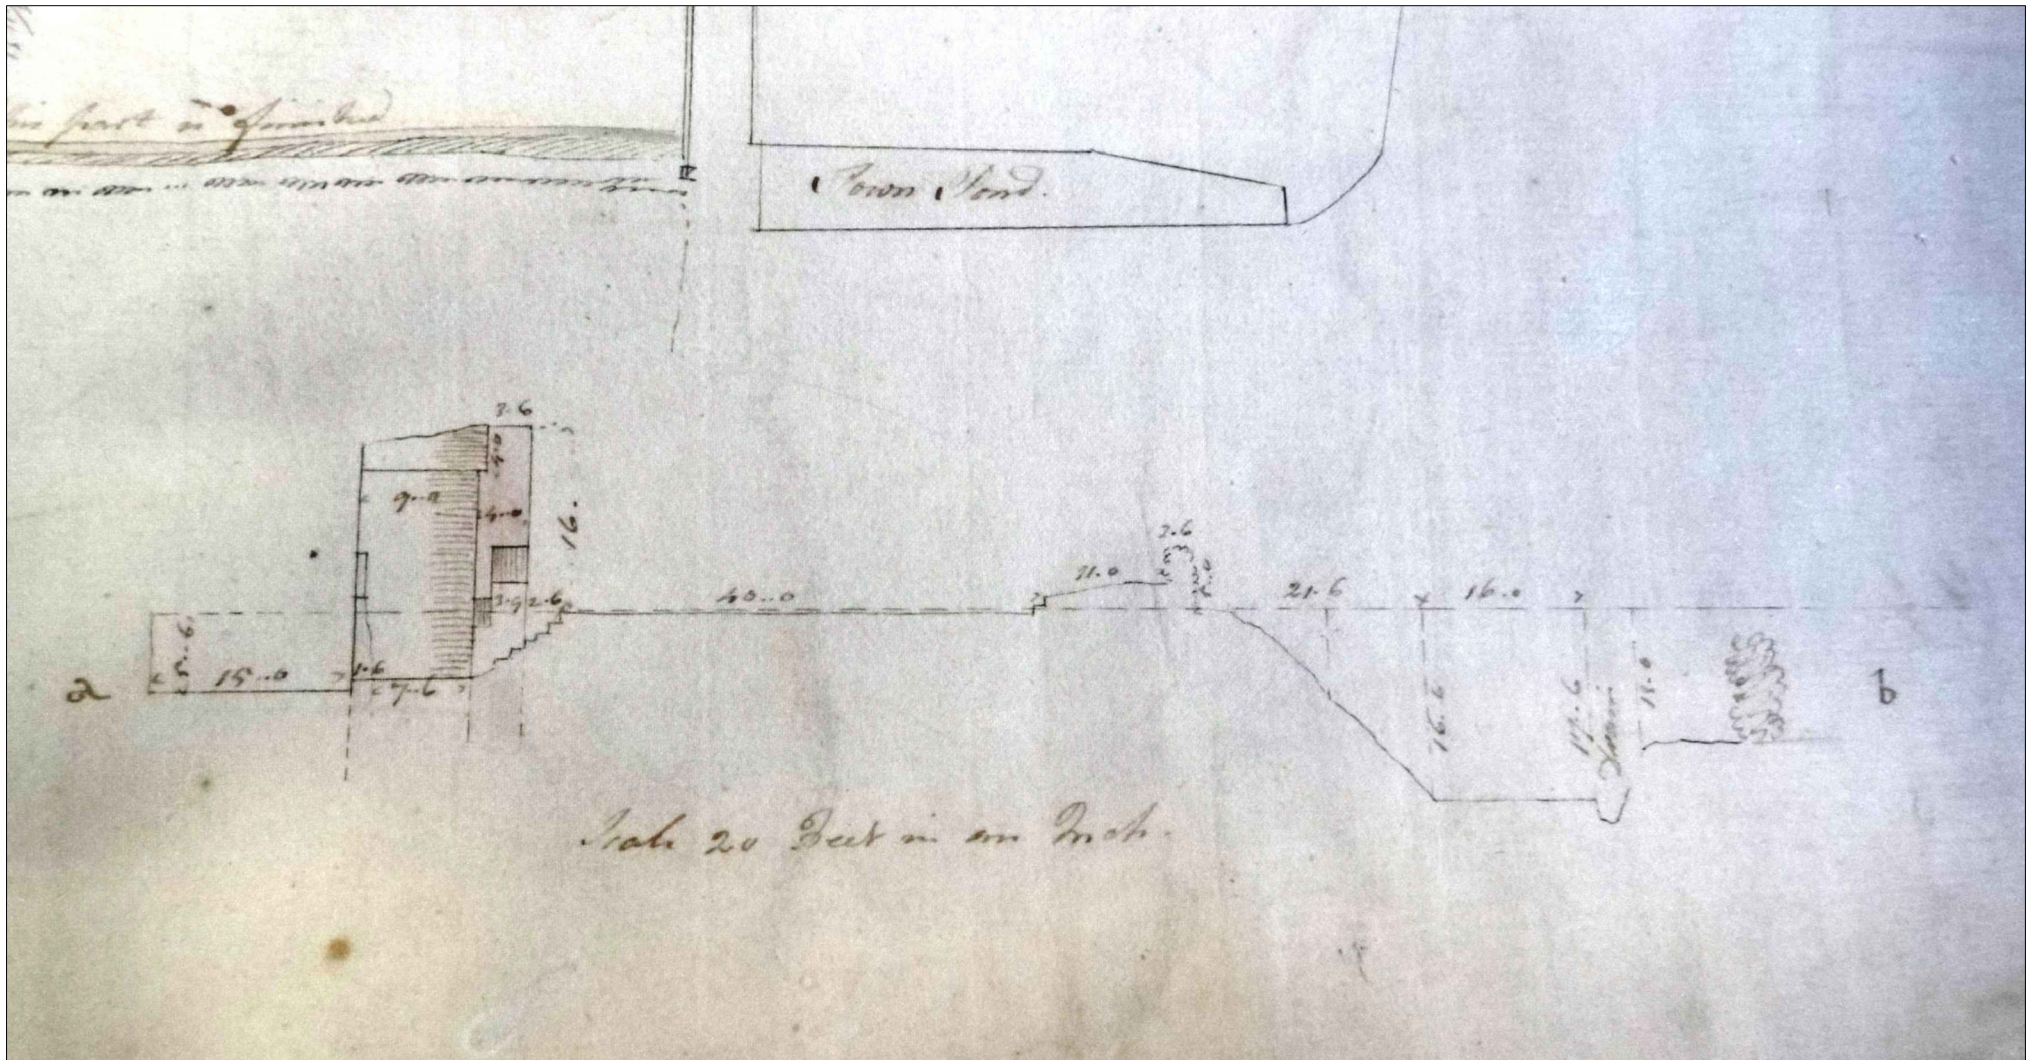 part is finished
Town Pond.
3.6
4.0
9..0
4..0
16.
2.6
11.0
3.9 2.6
40..0
21.6
16.0
5..6
15..0
1.6
7..6
16.6
17.6
Drain
a
b
Scale 20 Feet in an Inch.